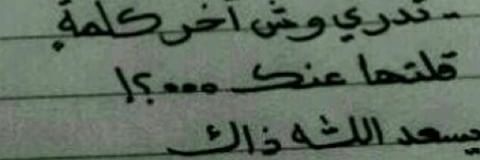 - تدري وش آخر كلمة
قلتها عنك ....؟!
يسعد اللثه ذاك